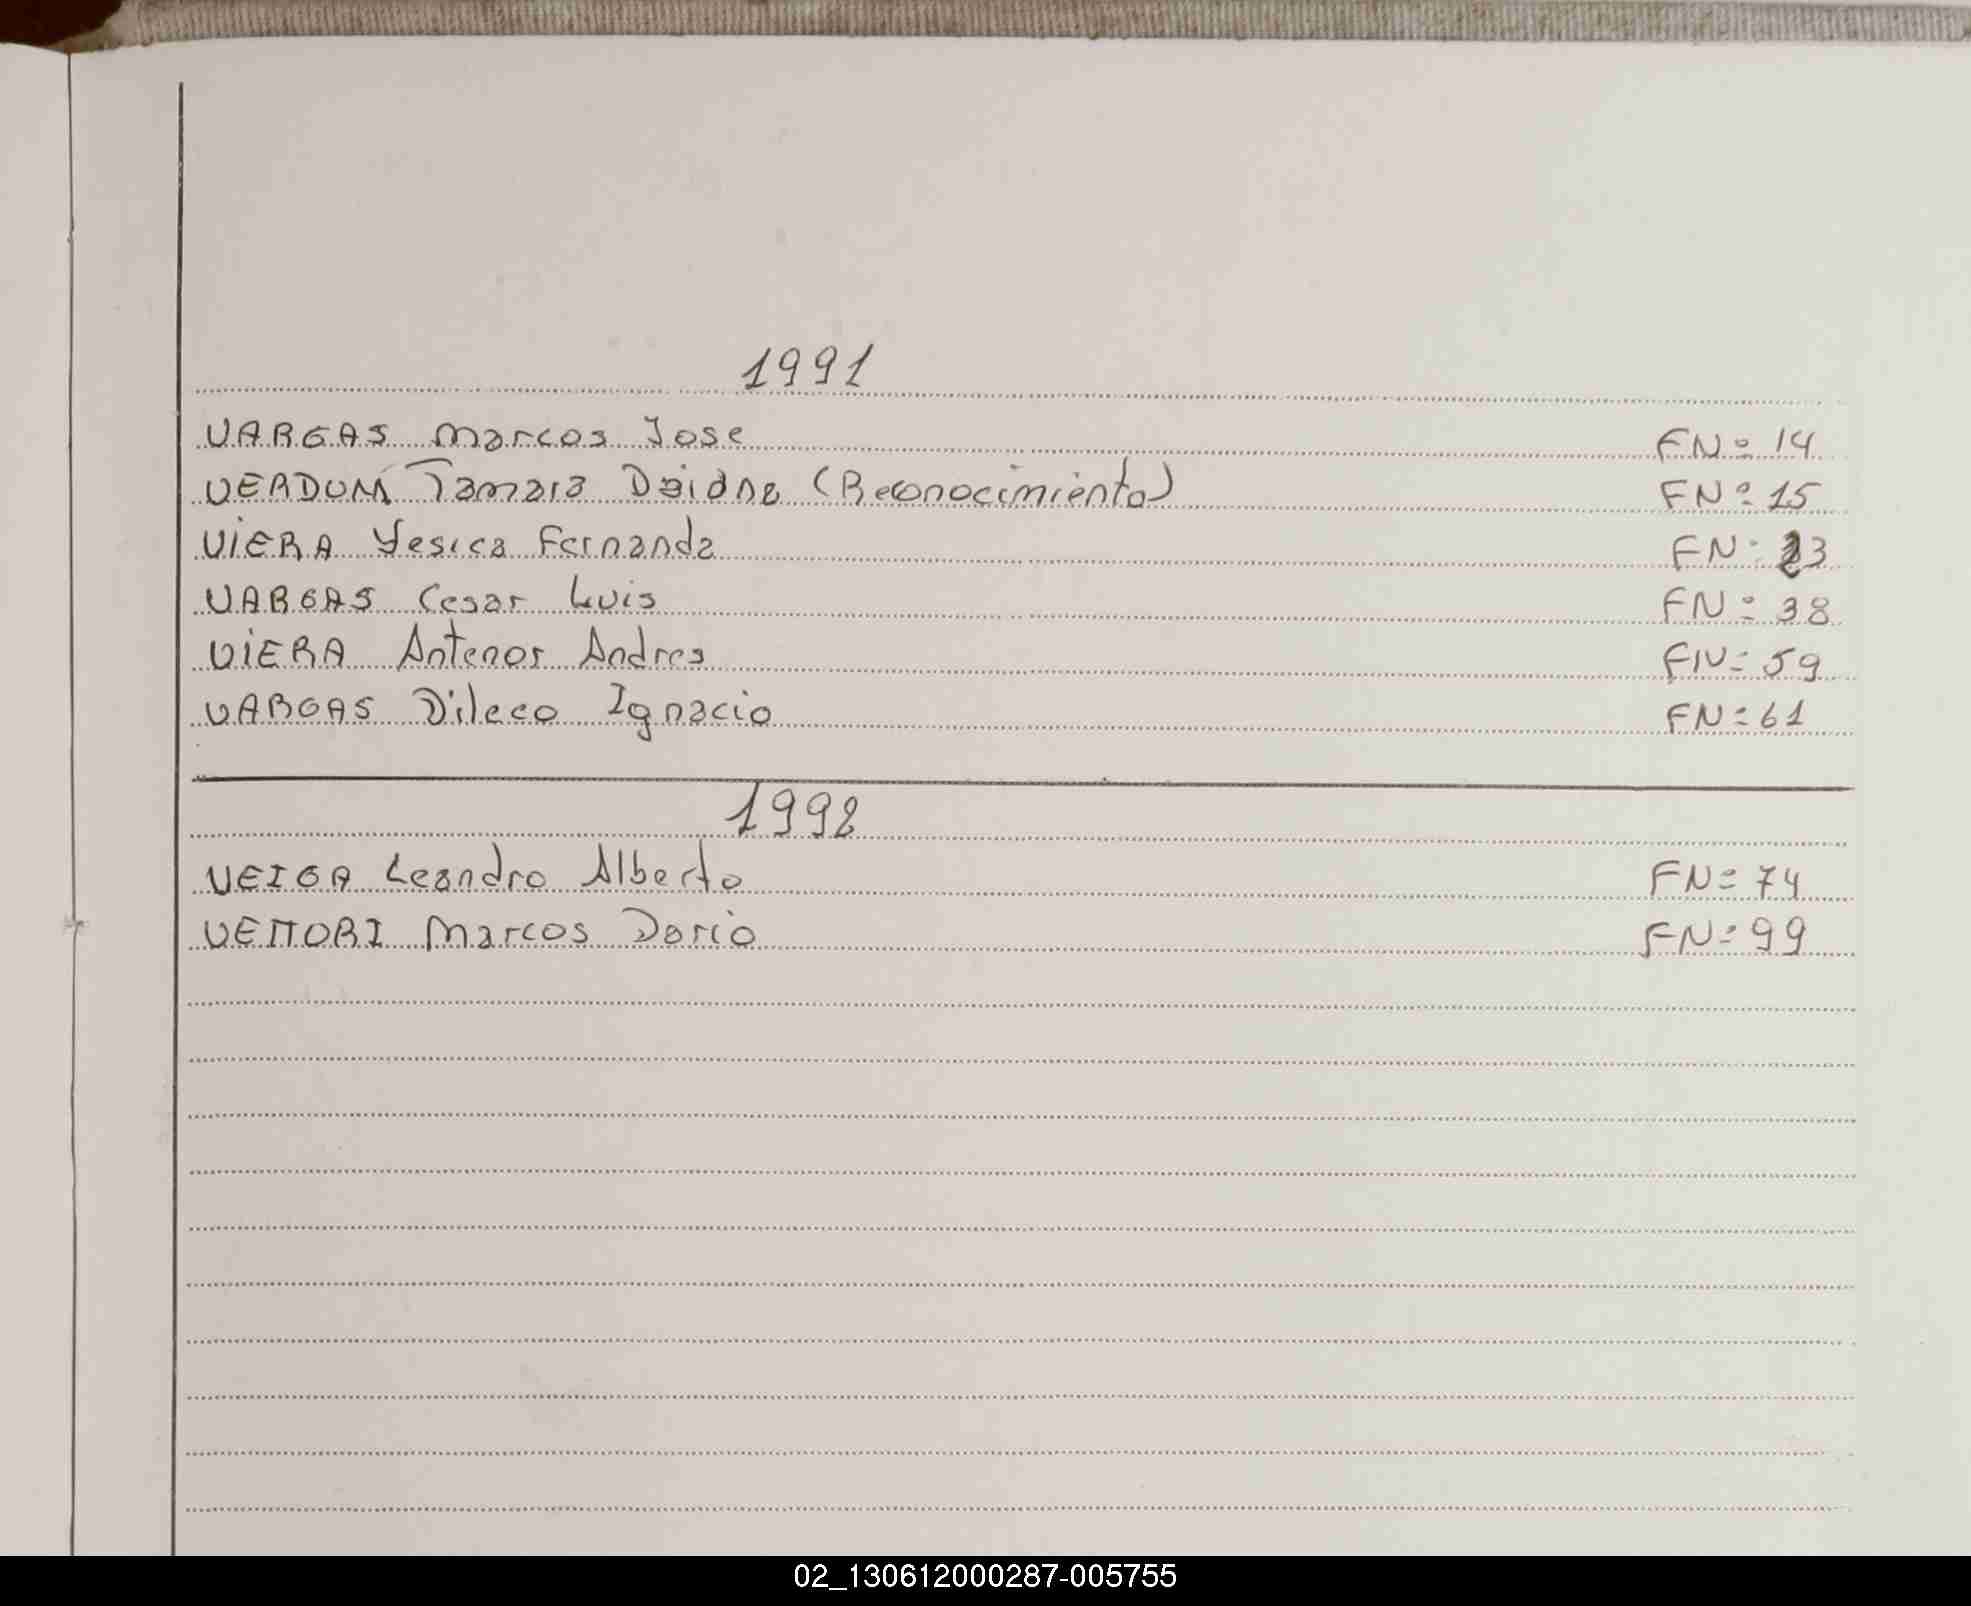 1991
VARGAS Marcos Jose FNº 14
VERDUM Tamara Daiana (Reconocimiento) FNº 15
VIERA Yesica Fernanda FNº 23
VARGAS Cesar Luis FNº 38
VIERA Antenor Andres FNº 59
VARGAS Dileco Ignacio FNº 61
1992
VEIGA Leandro Alberto FNº 74
VETTORI Marcos Dario FNº 99
02_130612000287-005755